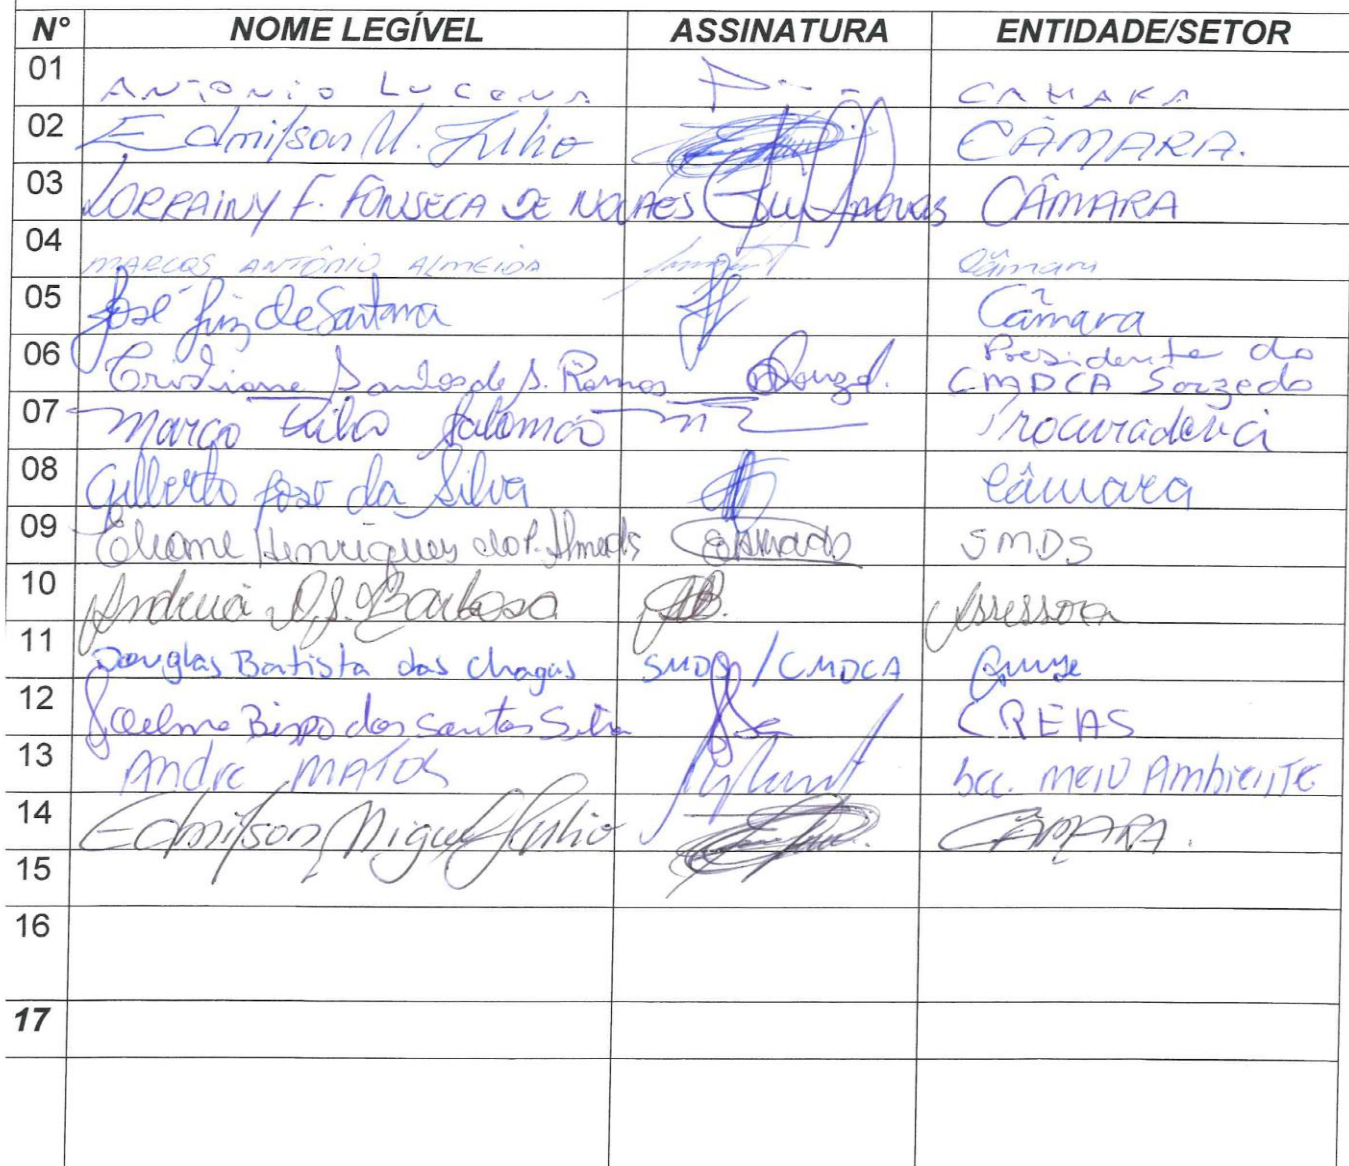 N° NOME LEGÍVEL ASSINATURA ENTIDADE/SETOR
01 ANTONIO LUCENA CAMARA
02 Edmilson M. Júlio CÂMARA.
03 LORRAINY F. FONSECA DE NOVAES CÂMARA
04 MARCOS ANTÔNIO ALMEIDA Câmara
05 José Luiz de Santana Câmara
06 Cristiane Santos de S. Ramos Presidente do
CMDCA Sarzedo
07 Marco Salomão Procuradoria
08 Gilberto José da Silva Câmara
09 Eliane Henriques do P. Almeida SMDS
10 Andreia Barbosa Assessora
11 Douglas Batista das Chagas SMDS/CMDCA
12 Bispo dos Santos Silva CREAS
13 Andre MATOS Sec. Meio Ambiente
14 Edmilson Miguel Júlio CÂMARA.
15
16
17